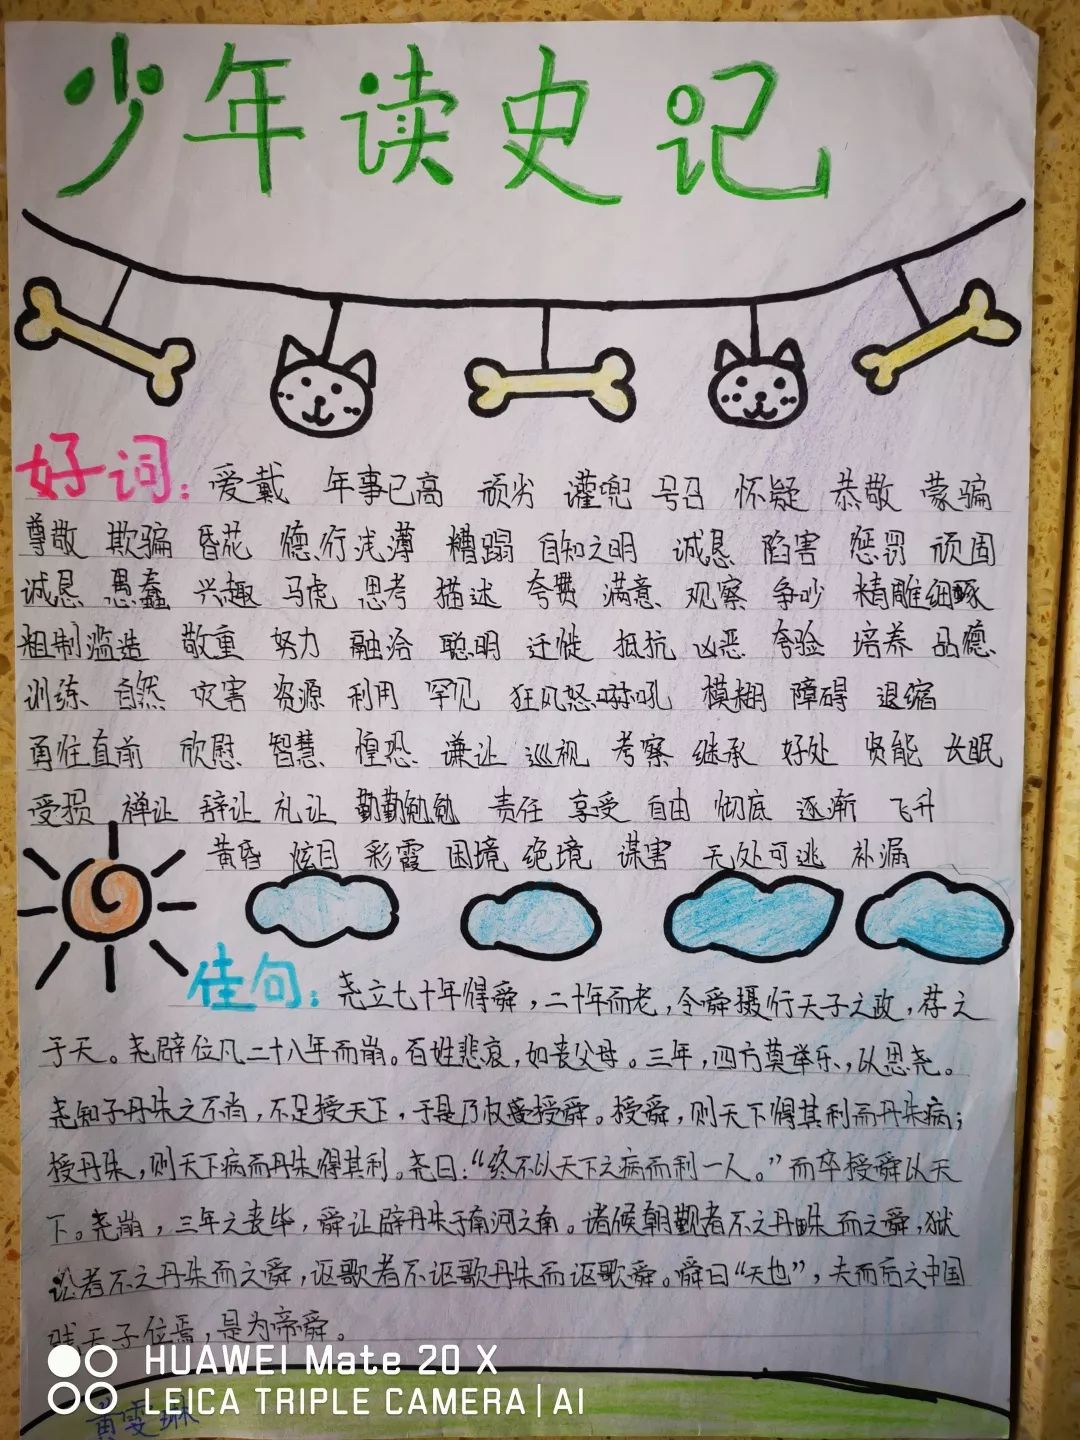 少年读史记
好词：爱戴 年事已高 顽劣 讙兜 号召 怀疑 恭敬 蒙骗
尊敬 欺骗 昏花 德行浅薄 糟蹋 自知之明 诚恳 陷害 惩罚 顽固
诚恳 愚蠢 兴趣 马虎 思考 描述 夸赞 满意 观察 争吵 精雕细琢
粗制滥造 敬重 努力 融洽 聪明 迁徙 抵抗 凶恶 考验 培养 品德
训练 自然 灾害 资源 利用 罕见 狂风怒吼 模糊 障碍 退缩
勇往直前 欣慰 智慧 惶恐 谦让 巡视 考察 继承 好处 贤能 长眠
受损 禅让 辞让 礼让 勤勤勉勉 责任 享受 自由 彻底 逐渐 飞升
黄昏 炫目 彩霞 困境 绝境 谋害 无处可逃 补漏
佳句：尧立七十年得舜，二十年而老，令舜摄行天子之政，荐之
于天。尧辟位凡二十八年而崩。百姓悲哀，如丧父母。三年，四方莫举乐，以思尧。
尧知子丹朱之不肖，不足授天下，于是乃权授舜。授舜，则天下得其利而丹朱病；
授丹朱，则天下病而丹朱得其利。尧曰：“终不以天下之病而利一人。”而卒授舜以天
下。尧崩，三年之丧毕，舜让辟丹朱于南河之南。诸侯朝觐者不之丹朱而之舜，狱
讼者不之丹朱而之舜，讴歌者不讴歌丹朱而讴歌舜。舜曰“天也”，夫而后之中国
践天子位焉，是为帝舜。
HUAWEI Mate 20 X
LEICA TRIPLE CAMERA | AI
黄雯琳